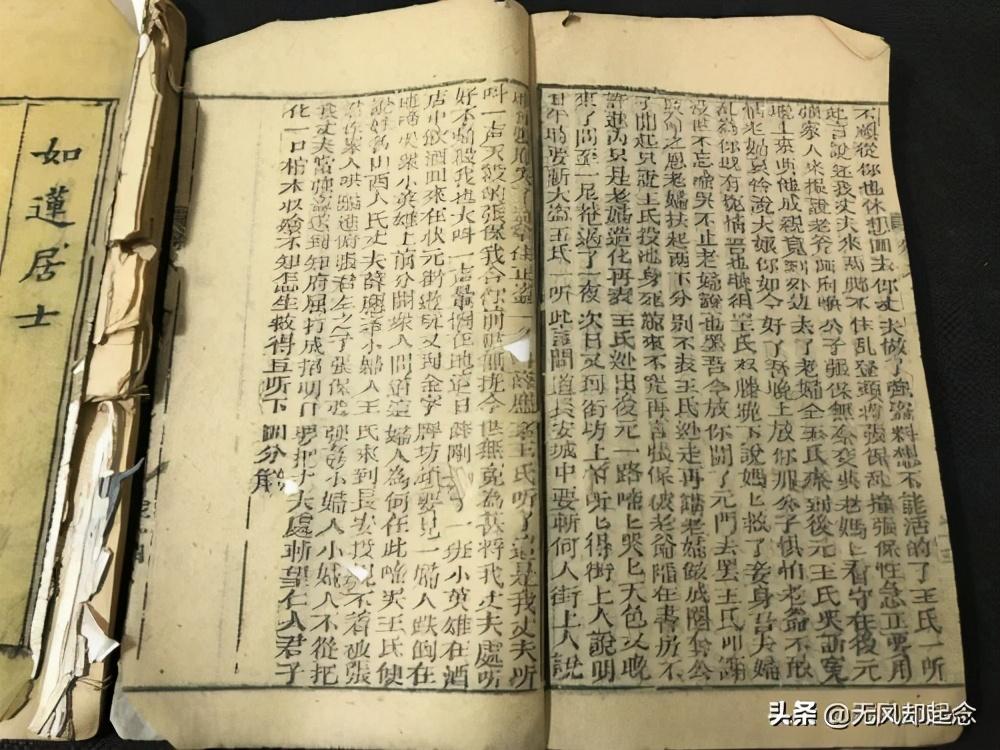 如蓮居士
不願從你也休想回去你丈夫做了強盜料想不能活的了王氏一听
此言說还我丈夫來两脚不住乱登頭將張保乱撞張保性急正要用
強家人來 說老爷 喚公子張保無奈交與老媽上看守在後元
晚上來與他成親竟到外边去了老嫗仝王氏來到後元王氏哭訴寃
情老嫗 說大娘你如今好了吾晚上放你那公子惧怕老爺不敢
乱為你既有寃情吾也 王氏双膝跪下說媽上救了妾身吾夫婦
没世不忘啼哭不止老嫗說也罢吾今放你開了元門去罢王氏叩謝
之恩老嫗扶起两下分别不表王氏迯走再講老嫗做成圈套公
了問起只説王氏投池身死 來不究再言張保被老爺陷在書房不
許進内只是老嫗造化再表王氏迯出後元一路啼上哭匕天色又晚
來了問至一尼菴過了一夜次日又到街坊上前听匕得街上人說明
日午時要斬大盜王氏一听此言問道長安城中要斬何人街上人説
拿住正盗一名 王氏听了這是我丈夫听
叫一声天殺的張保我合你前世無 今世無寃為甚將我丈夫處斬
好不痛殺我也大叫一声暈倒在地這日薛剛 一班小英雄在酒
店中飲酒回來在状元街遊玩又到金字牌坊 要見一嫗人跌倒在
地 眾小英雄上前分開眾人問道這嫗人為何在此啼哭王氏使
說奴為山西人氏丈夫薛應 小婦人王氏來到長安投親不着破張
家人哄騙進府張君左之子張保要強奸小婦人小婦人不從把
我丈夫當強盗送到知府屈打成招明日要把丈夫處斬望仁人君子
化一口棺木收殮不知怎生救得且听下回分解
头条 @无风却起念